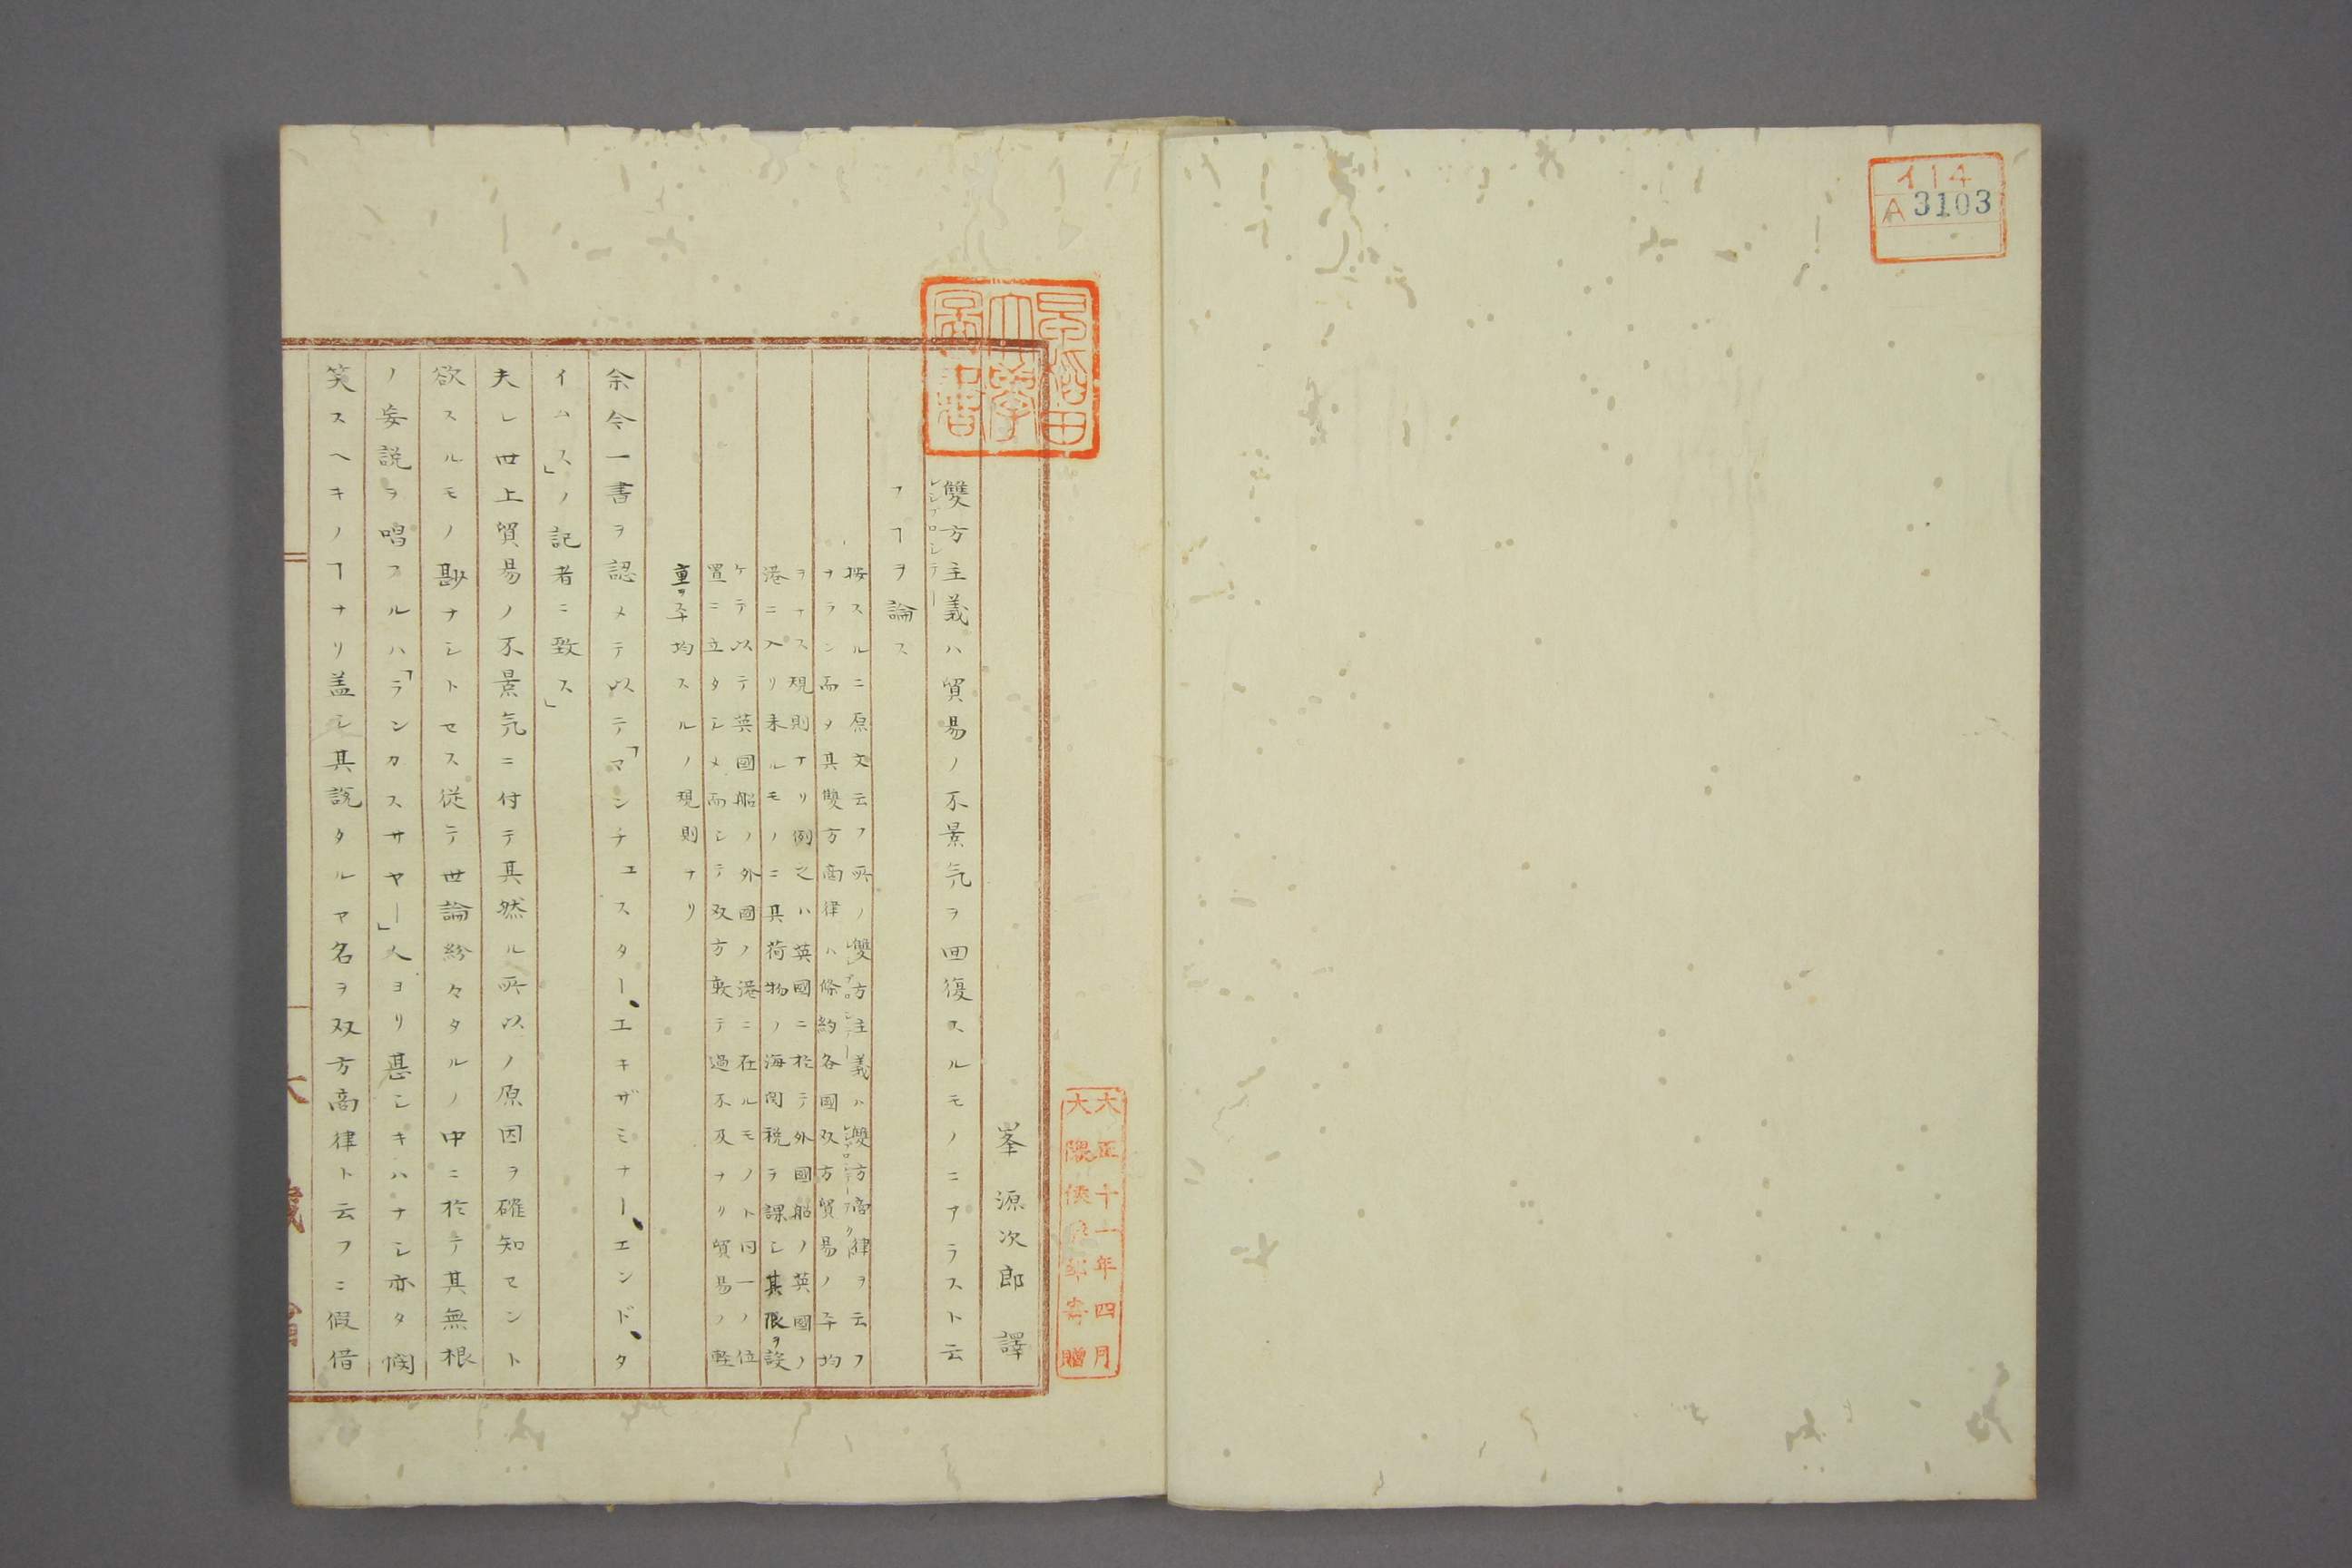 イ14
A 3103
早稲田
大學
圖書
大正十一年四月
大隈侯爵家寄贈
峯源次郎譯
雙方主義ハ貿易ノ不景気ヲ回復スルモノニアラスト云
フヿヲ論ス
按スルニ原文云フ所ノ雙方主義ハ雙方商律ヲ云フ
ナラン而タ其雙方商律ハ條約各國双方貿易ノ平均
ヲナス規則ナリ例之ハ英國ニ於テ外國船ノ英國ノ
港ニ入リ来ルモノニ其荷物ノ海関税ヲ課シ其限ヲ設
ケテ以テ英國船ノ外國ノ港ニ在ルモノト同一ノ位
置ニ立タシメ而シテ双方敢テ過不及ナリ貿易ノ軽
重ヲ平均スルノ規則ナリ
余今一書ヲ認メテ以テ「マンチェスター、エキザミナー、エンド、タ
イムス」ノ記者ニ致ス」
夫レ世上貿易ノ不景気ニ付テ其然ル所以ノ原因ヲ確知セント
欲スルモノ尠ナシトセス従テ世論紛々タルノ中ニ於テ其無根
ノ妄説ヲ唱フルハ「ランカスサヤー」人ヨリ甚シキハナシ亦タ憫
笑スヘキノヿナリ盖シ其説タルヤ名ヲ双方商律ト云フニ假借
大藏省